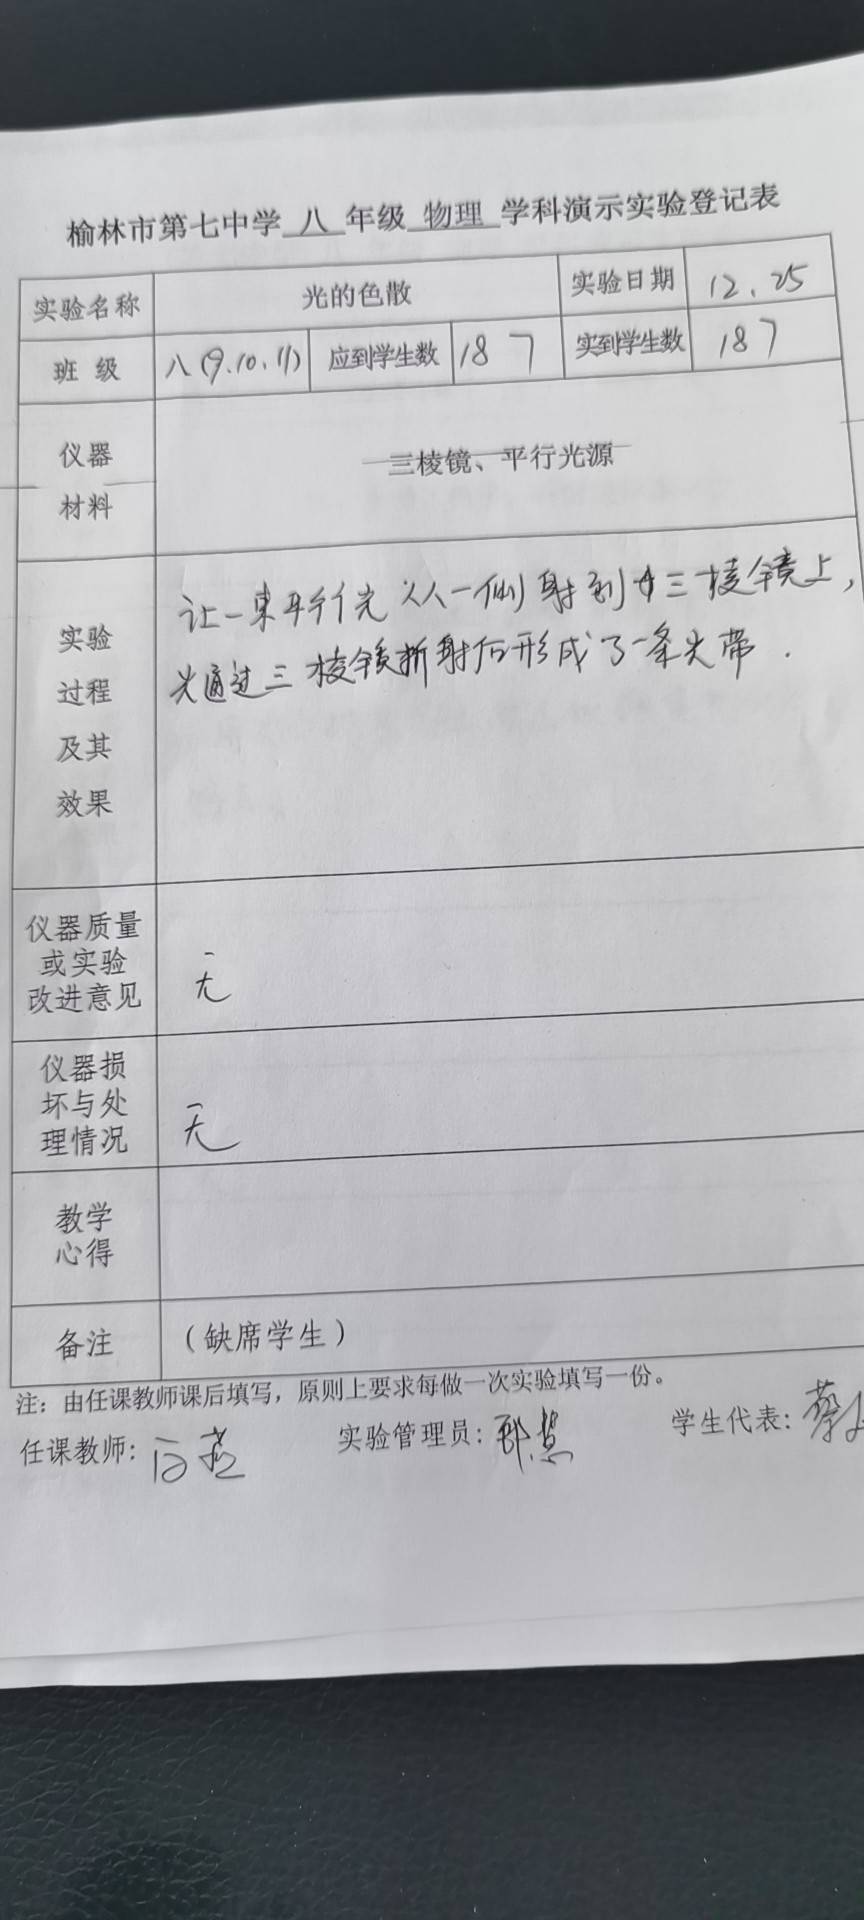 榆林市第七中学 八 年级 物理 学科演示实验登记表
实验名称 光的色散 实验日期 12.25
班级 八(9.10.11) 应到学生数 187 实到学生数 187
仪器
材料
三棱镜、平行光源
让一束平行光从一侧射到三棱镜上，
光通过三棱镜折射后形成了一条光带.
实验
过程
及其
效果
仪器质量
或实验
改进意见
无
仪器损
坏与处
理情况
无
教学
心得
备注 （缺席学生）
注：由任课教师课后填写，原则上要求每做一次实验填写一份。
任课教师: 实验管理员: 学生代表: 蔡